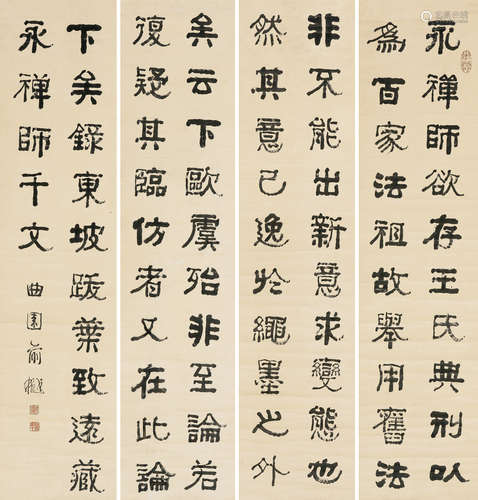 永禪師欲存王氏典刑以
為百家法祖故舉用舊法
非不能出新意求變態也
然其意已逸於繩墨之外
矣云下歐虞殆非至論若
復疑其臨仿者又在此論
下矣錄東坡跋葉致遠藏
永禪師千文
曲園俞樾